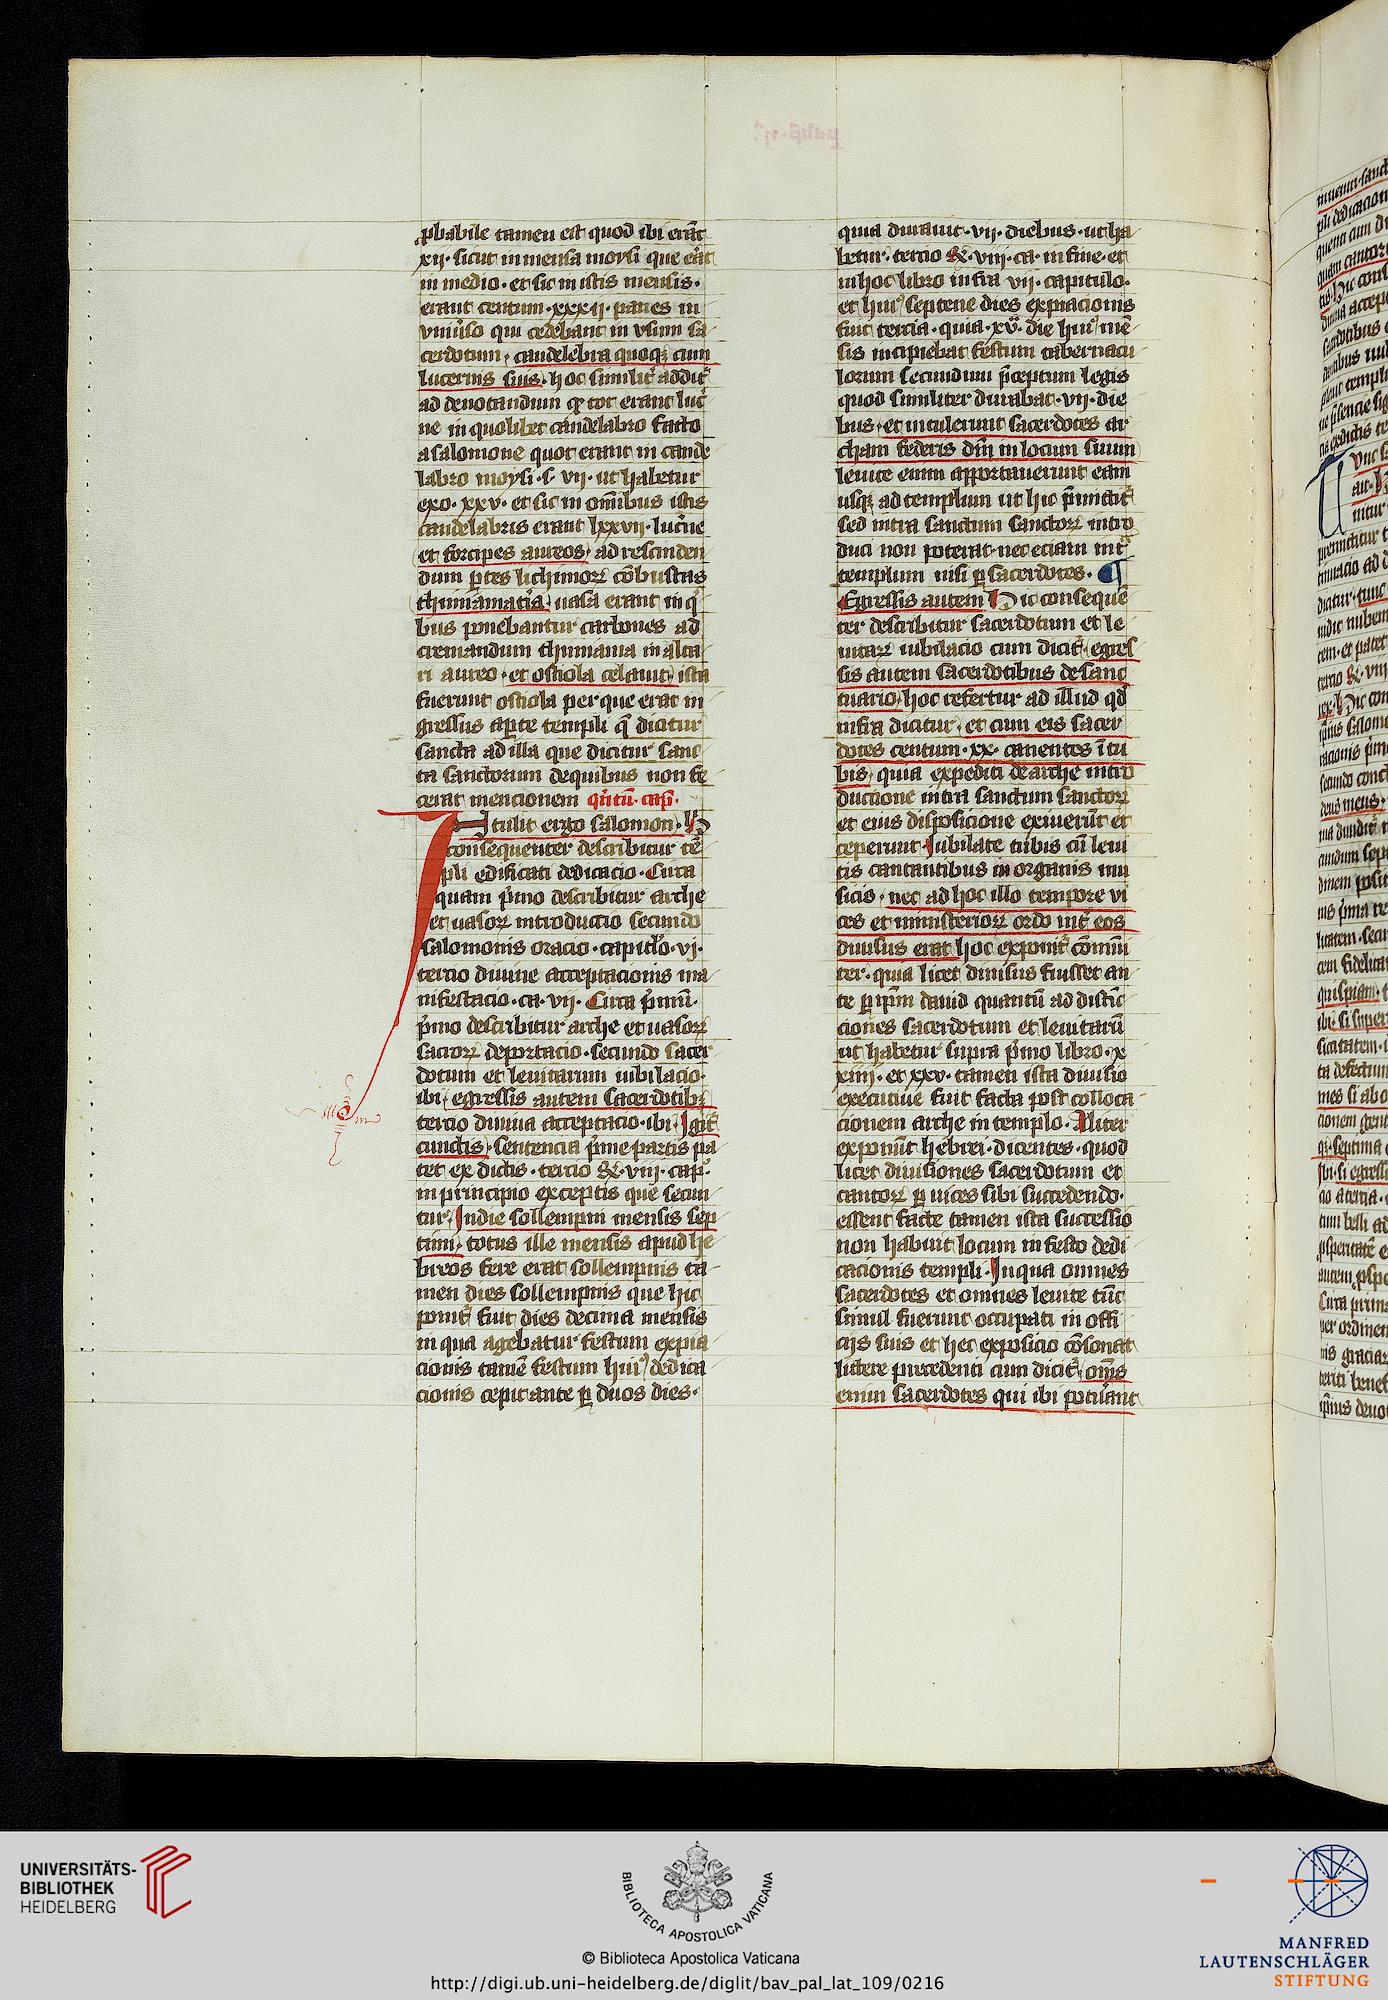 ꝓbabile tamen est quod ibi erāt
xii · sicut in mensa moysi que eāt
in medio · et sic in istis mensis ·
erant centum · xxxii · panes in
vniuso qui cedebant in vsum sa
cerdotum · candelebra quoqꝫ cum
lucernis suis · hoc similit addit
ad denotandum qͥ tot erant luc̄
ne in quolibet candelabro facto
a salomone quot erant in cande
labro moysi · s · vii · ut habetur
exo · xxv · et sic in om̄ibus istis
candelabris erant lxxvii · luc̄ne
et forcipes aureos · ad rescinden
dum ꝑtes lichimoꝝ cōbustas
thimiamat̄ia · uasa erant in qͥ
bus ponebantur carbones ad
cremandum thimiama in alta
ri aureo · et ostiola celauit · ista
fuerunt ostiola per que erat in
gressus aperte templi q̄ dicitur
sancta ad illa que dicitur sanc
ta sanctorum de quibus non fe
cerat mencionem qͥntū · cap̄ ·
Itulit ergo salomon · H
consequenter describitur tē
pli edificati dedicacio · Circa
quam pͥmo describitur arche
et uasoꝝ introductio secundo
salomonis oracio · capitl̄o · vi ·
tercio diuine acceptacionis ma
nifestacio · ca · vii · Circa pͥmū ·
pͥmo describitur arche et uasoꝝ
sacroꝝ deportacio · secundo sacer
dotum et leuitarum iubilacio ·
ibi · egressis autem sacerdotibꝫ
tercio diuina acceptacio · ibi · Igit̄
cunctis · Sentencia pͥme partis pa
tet ex dictis · tercio R̄ · viii · cap̄ ·
in principio exceptis que secun
tur · In die sollempni mensis sep
timi · totus ille mensis apud he
breos fere erat sollempnis ta
men dies sollempnis que hic
ponit̄ fuit dies decima mensis
in qua agebatur festum expia
cionis tamē festum huiꝰ dedica
cionis cepit ante ꝑ duos dies ·
quia durauit · vii · diebus · ut ha
betur · tercio R̄ · viii · ca · in fine · et
in hoc libro infra vii · capitulo ·
et huiꝰ septene dies expiacionis
fuit tercia · quia · xv · die huiꝰ mē
sis incipiebat festum tabernacu
lorum secundum p̄ceptum legis
quod similiter durabat · vii · die
bus · et intulerunt sacerdotes ar
cham federis dn̄i in locum suum
leuite enim apportauerunt eam
usqꝫ ad templum ut hic p̄mittit̄
sed intra sanctum sanctoꝝ intro
duci non poterat nec eciam int̄
templum nisi ꝑ sacerdotes · ¶
Egressis autem Hic conseque̅
ter describitur sacerdotum et le
uitaꝝ iubilacio cum dicit̄ · egres
sis autem sacerdotibus de sanc
tuario · hoc refertur ad illud qd̄
infra dicitur · et cum eis sacer
dotes centum · xx · canentes ī tu
bis · quia expediti de arche intro
ductione intra sanctum sanctoꝝ
et eius disposicione exiuerūt et
ceperunt · Iubilate tubis cū leui
tis cantantibus in organis mu
sicis · nec ad hoc illo tempore vi
ces et ministerioꝝ ordo int̄ eos
diuisus erat hoc exponit̄ cōmū
ter · quia licet diuisus fuisset an
te ꝑ ip̄m dauid quantū ad distīc
ciones sacerdotum et leuitarū
ut habetur supra pͥmo libro · x
xiiii · et xxv · tamen ista diuisio
executiue fuit facta post colloca
cionem arche in templo · Aliter
exponūt hebrei · dicentes · quod
licet diuisiones sacerdotum et
cantoꝝ ꝑ uices sibi succedendo ·
essent facte tamen ista successio
non habuit locum in festo dedi
cacionis templi · In qua omnes
sacerdotes et omnes leuite tūc
simul fuerunt occupati in offi
ciis suis et hec exposicio cōsonat
littere precedenti cum dicit̄ · om̄s
enim sacerdotes qui ibi potuāt
UNIVERSITÄTS-
BIBLIOTHEK
HEIDELBERG
BIBLIOTECA APOSTOLICA VATICANA
© Biblioteca Apostolica Vaticana
http://digi.ub.uni-heidelberg.de/diglit/bav_pal_lat_109/0216
MANFRED
LAUTENSCHLÄGER
STIFTUNG